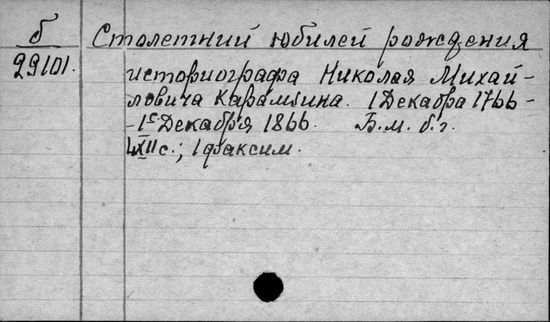 б
29101.
Столетний юбилей рождения
историографа Николая Михай-
ловича Карамзина. 1 Декабра 1766 -
- 1е Декабря 1866. Б.м. б.г.
с.; 1 факсим.